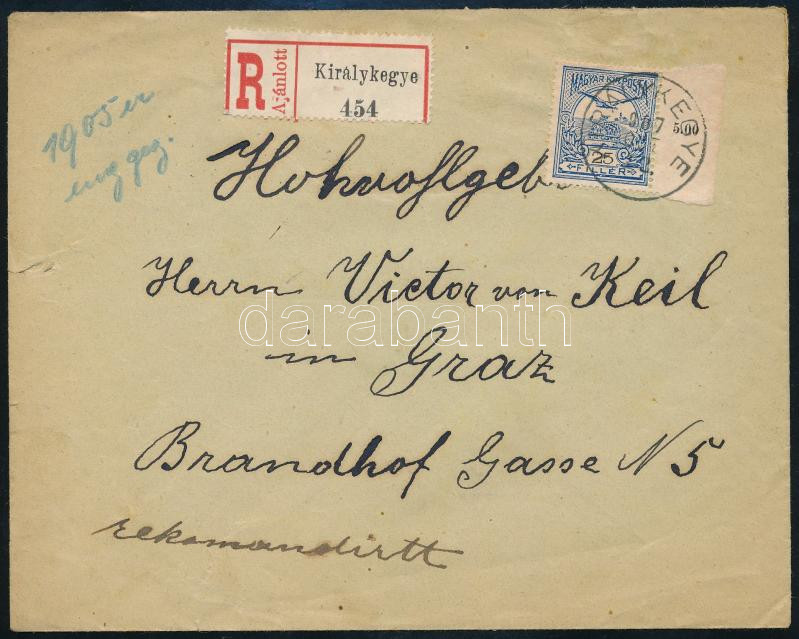 R Ajánlott
Királykegye
454
MAGYAR KIR. POSTA
25
FILLER
KIRÁLYKEGYE
907
500
1905er
Hohvohlgeb
Herrn Victor von Keil
in Graz
Brandhof Gasse N 5
rekomandirtt
darabanth